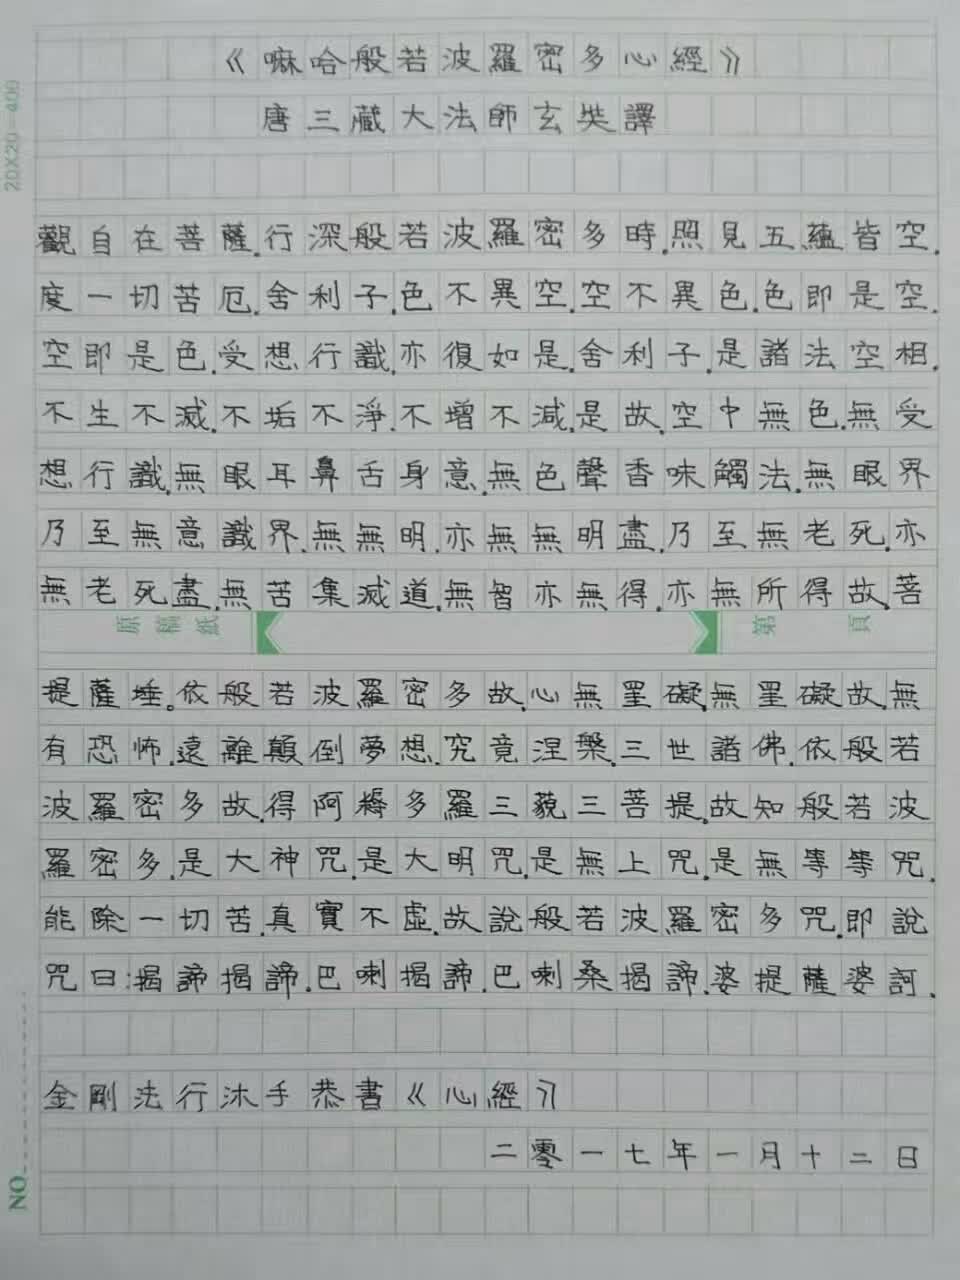 《嘛哈般若波羅密多心經》
20X20=400
唐三藏大法師玄奘譯
觀自在菩薩.行深般若波羅密多時.照見五蘊皆空.
度一切苦厄.舍利子.色不異空.空不異色.色即是空.
空即是色.受想行識.亦復如是.舍利子.是諸法空相.
不生不滅.不垢不淨.不增不減.是故.空中無色.無受
想行識.無眼耳鼻舌身意.無色聲香味觸法.無眼界
乃至無意識界.無無明.亦無無明盡.乃至無老死.亦
無老死盡.無苦集滅道.無智亦無得.亦無所得故.菩
原稿紙 第 頁
提薩埵。依般若波羅密多故.心無罣礙.無罣礙故.無
有恐怖.遠離顛倒夢想.究竟涅槃.三世諸佛.依般若
波羅密多故.得阿耨多羅三藐三菩提.故知般若波
羅密多.是大神咒.是大明咒.是無上咒.是無等等咒.
能除一切苦.真實不虛.故說般若波羅密多咒.即說
咒曰:揭諦揭諦.巴喇揭諦.巴喇桑揭諦.婆提薩婆訶.
金剛法行沐手恭書《心經》
二零一七年一月十二日
NO